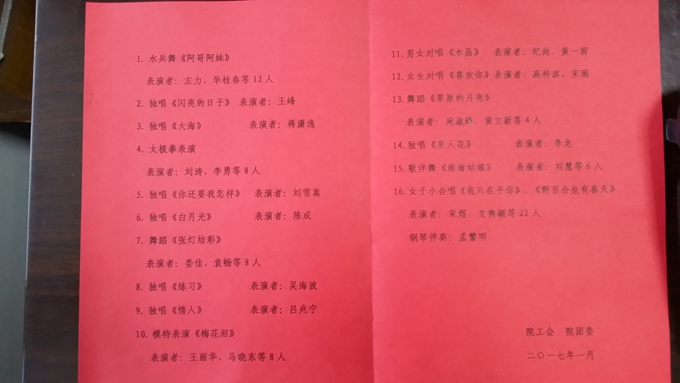 1. 水兵舞《阿哥阿妹》
表演者：左力、华桂春等 12 人
2. 独唱《闪亮的日子》 表演者：王峰
3. 独唱《大海》 表演者：蒋潇逸
4. 太极拳表演
表演者：刘涛、李勇等 8 人
5. 独唱《你还要我怎样》 表演者：刘雪嵩
6. 独唱《白月光》 表演者：陈成
7. 舞蹈《张灯结彩》
表演者：娄佳、袁畅等 8 人
8. 独唱《练习》 表演者：吴海波
9. 独唱《情人》 表演者：吕兆宁
10. 模特表演《梅花泪》
表演者：王丽华、马晓东等 8 人
11. 男女对唱《水晶》 表演者：纪尚、黄一茜
12. 女生对唱《喜欢你》表演者：高梓淇、宋丽
13. 舞蹈《草原的月亮》
表演者：宛淑、黄立新等 4 人
14. 独唱《男人花》 表演者：李龙
15. 歌伴舞《南海姑娘》 表演者：刘慧等 6 人
16. 女子小合唱《我只在乎你》、《野百合也有春天》
表演者：宋熠、等 22 人
钢琴伴奏：孟繁明
院工会 院团委
二〇一七年一月